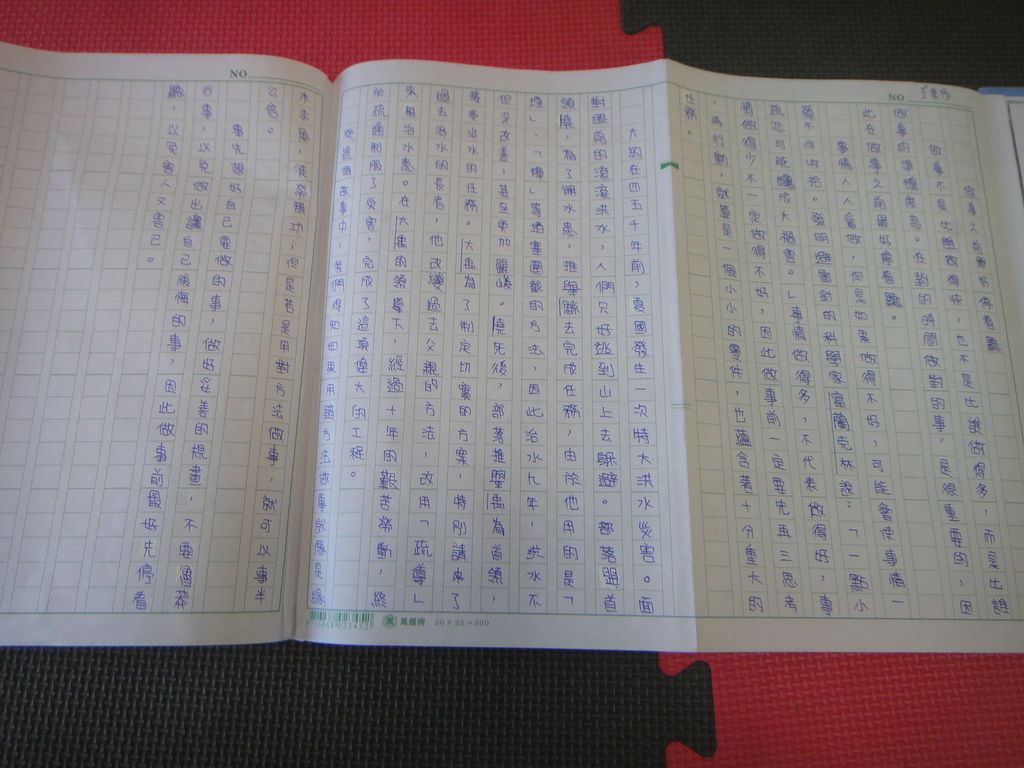 NO
做事之前最好停看聽
做事不是比誰做得快,也不是比誰做得多,而是比誰
做事的準確度高。在對的時間做對的事,是很重要的,因
此在做事之前最好停看聽。
事情人人會做,但是如果做得不好,可能會使事情一
發不可收拾。發明避雷針的科學家富蘭克林說:「一點小
疏忽可能釀成大禍害。」事情做得多,不代表做得好,事
情做得少不一定做得不好,因此做事前一定要先再三思考
,再行動,就算是一個小小的零件,也蘊含著十分重大的
任務。
大約在四五千年前,夏國發生一次特大洪水災害。面
對眼前的滾滾洪水,人們只好逃到山上去躲避。部落盟首
領堯,為了嗣水患,推舉鯀去完成任務,由於他用的是「
堙」、「障」等堵塞圍截的方法,因此治水九年,洪水不
但沒改善,甚至更加嚴峻。堯死後,部落推舉禹為首領,
接受治水的任務。大禹為了制定切實的方案,特別請來了
過去治水的長者,他改變過去父親的方法,改用「疏導」
來根治水患。在大禹的領導下,經過十年的艱苦勞動,終
於疏通制服了災害,完成了這項偉大的工程。
從這個故事中,我們得知如果用錯方法做事就像是緣
萬國牌 20×25=500
NO
木求魚,徒勞無功;但是若是用對方法做事,就可以事半
功倍。
事先想好自己要做的事,做好妥善的規畫,不要魯莽
行事,以免做出讓自己後悔的事,因此做事前最好先停看
聽,以免害人又害己。